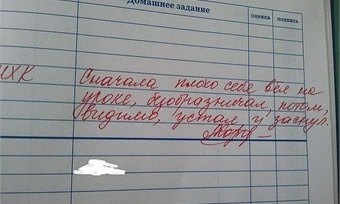 Домашнее задание
оценка
подпись
МХК
Сначала плохо себя вел на
уроке, безобразничал, потом,
видимо, устал и заснул.